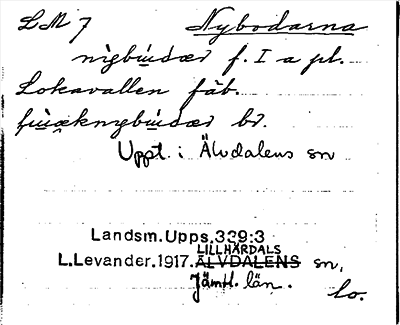 LM 7 Nybodarna
nìgbùdær f. I a pl.
Lokavallen fäb.
br.
Uppt. i Älvdalens sn
Landsm.Upps.339:3
LILLHÄRDALS
L.Levander.1917. ÄLVDALENS sn,
Jämtl. län.
lo.